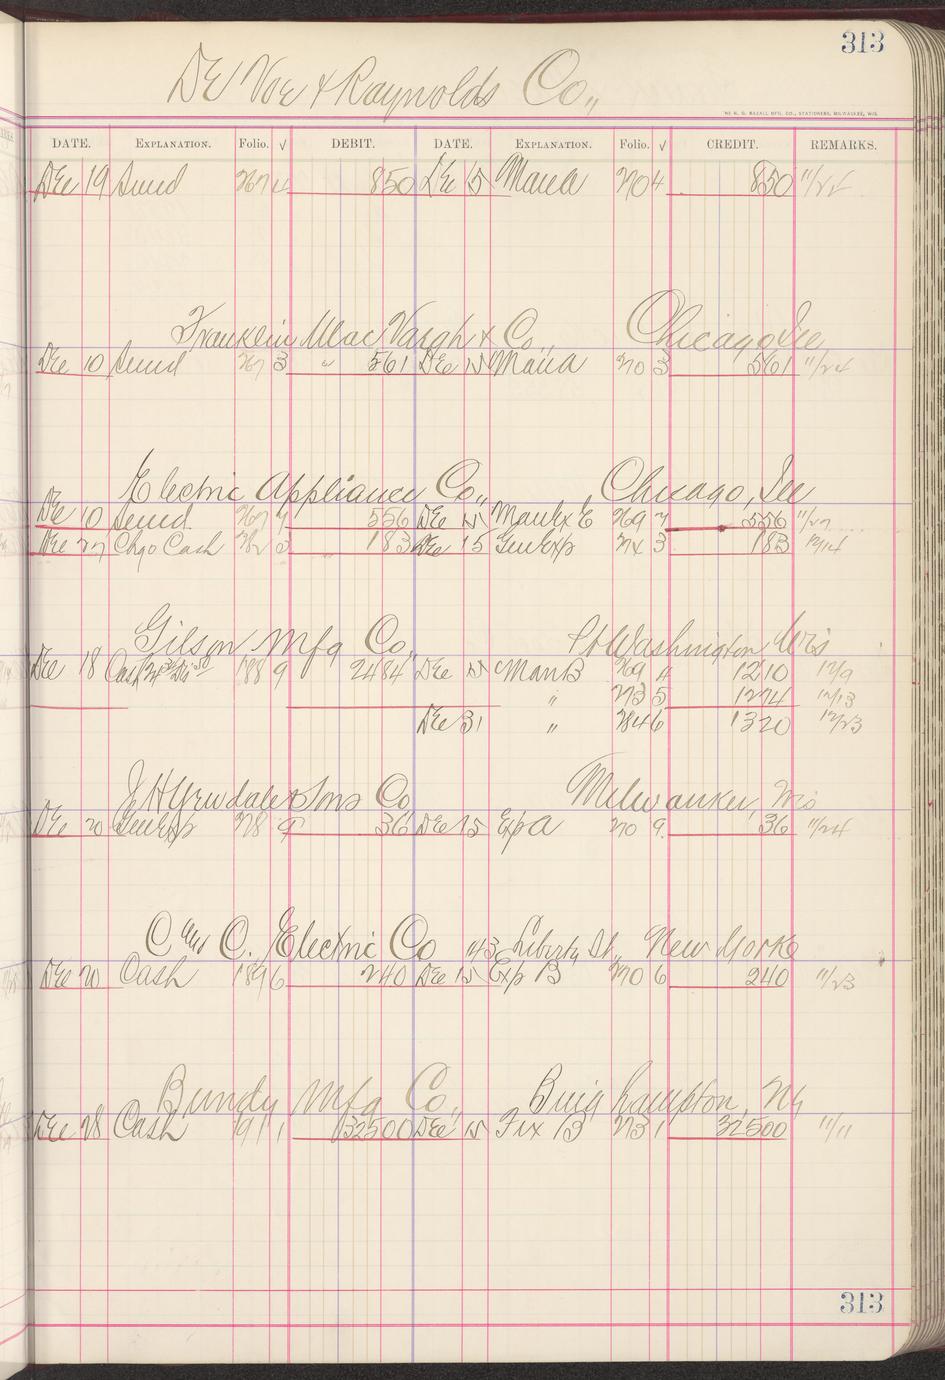 313
De Voe & Raynolds Co.,
THE H. G. RAZALL MFG. CO., STATIONERS, MILWAUKEE, WIS.
DATE. EXPLANATION. Folio. √ DEBIT. DATE. EXPLANATION. Folio. √ CREDIT. REMARKS.
Dec 19 Sund 267 4 850 Dec 15 Man a 270 4 850 11/25
Franklin MacVaugh & Co., Chicago, Ill
Dec 10 Sund 267 3 " 561 Dec 15 Man a 270 3 561 11/24
Electric Appliance Co., Chicago, Ill
Dec 10 Sund. 267 7 556 Dec 15 Man Ex E 269 7 556 11/27
Dec 27 Chgo Cash 282 3 183 Dec 15 Gen Exp 274 3 183 12/14
Gilson Mfg Co., Pt Washington Wis
Dec 18 Cash 188 9 2484 Dec 15 Man B 269 4 1210 12/9
" 273 5 1274 12/13
Dec 31 " 284 6 1320 12/23
J H Yewdale & Sons Co Milwaukee, Wis
Dec 20 Gen Exp 278 9 36 Dec 15 Exp a 270 9 36 11/24
C and C. Electric Co 143 Liberty St., New York
Dec 20 Cash 189 6 240 Dec 15 Exp B 270 6 240 11/23
Bundy Mfg Co., Binghampton, Ny
Dec 28 Cash 191 1 32500 Dec 15 Fix B 273 1 32500 11/11
313